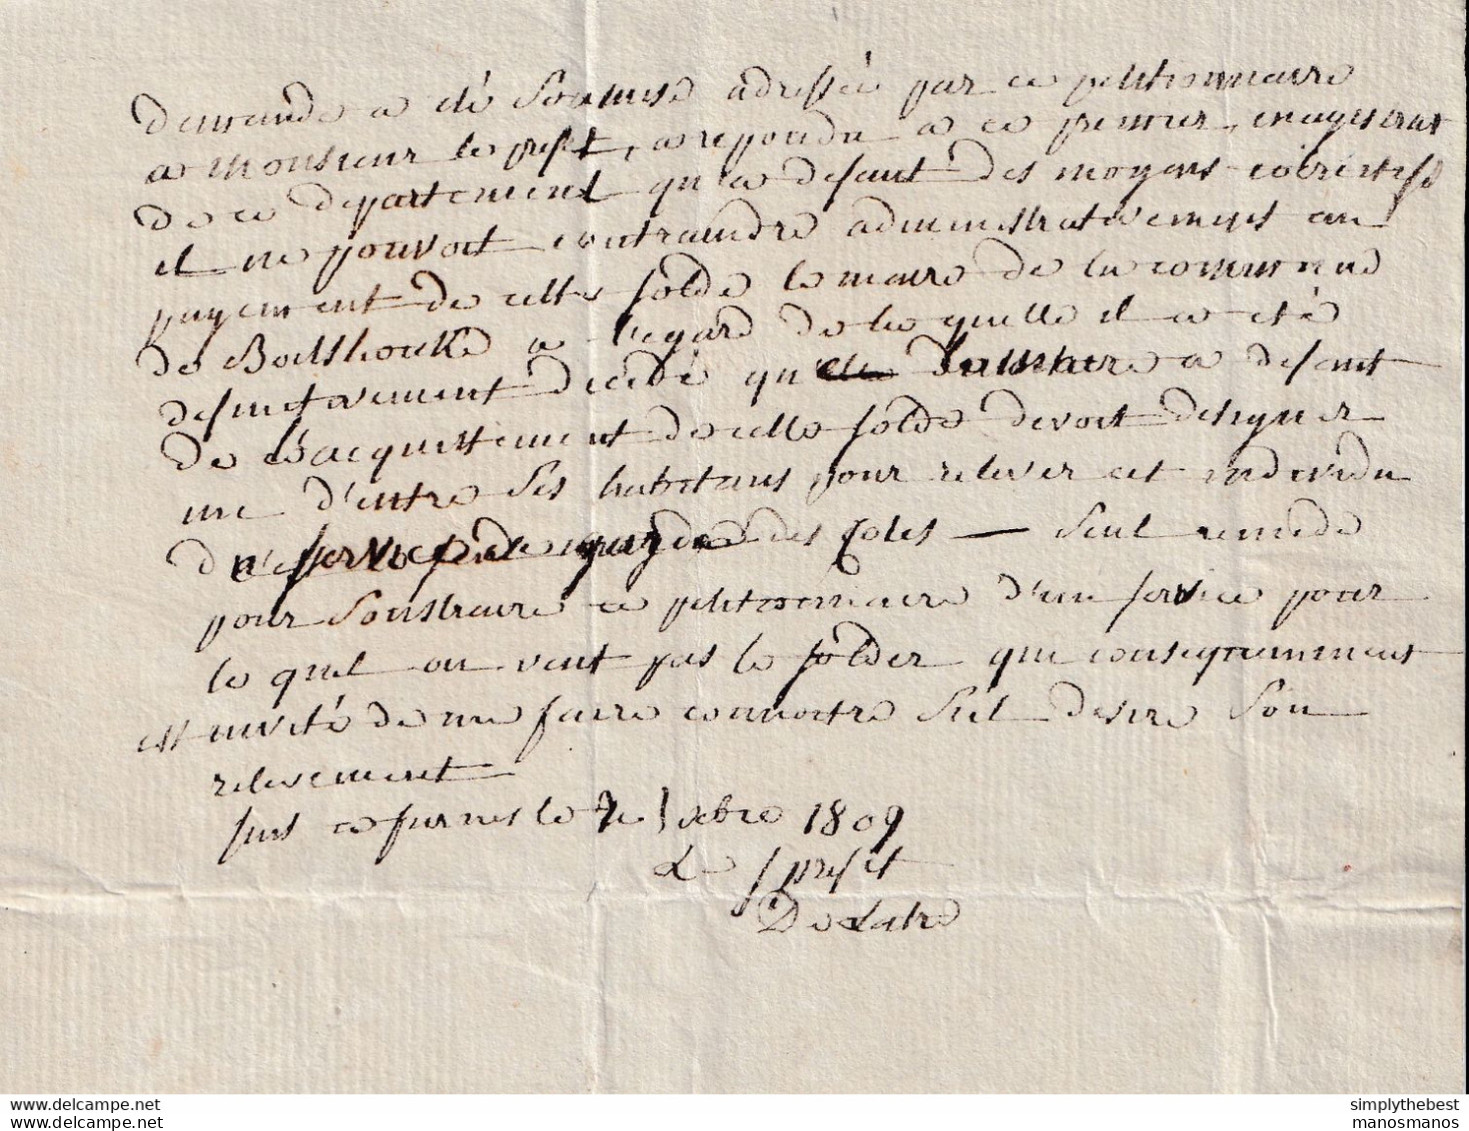 demande a eté soumise adressée par ce petitionnaire
a monsieur le prefet, a repondu a ce premier,
de ce departement qu'a defaut des moyens coercitifs
il ne pouvoit contraindre administrativement au
payement de cette solde le maire de la commune
de Boitshoucke a l'egard de laquelle il a eté
definitivement decidé qu'elle a defaut
de l'acquittement de cette solde devoit designer
un d'entre ses habitans pour relever cet individu
du service de garde des cotes — seul remede
pour soustraire ce petitionnaire d'un service pour
le quel on veut pas le solder qui consequemment
est invité de me faire connoitre s'il desire son
relevement
furnes le 7e 1809
Le s/prefet
De Latre
simplythebest
www.delcampe.net
manosmanos